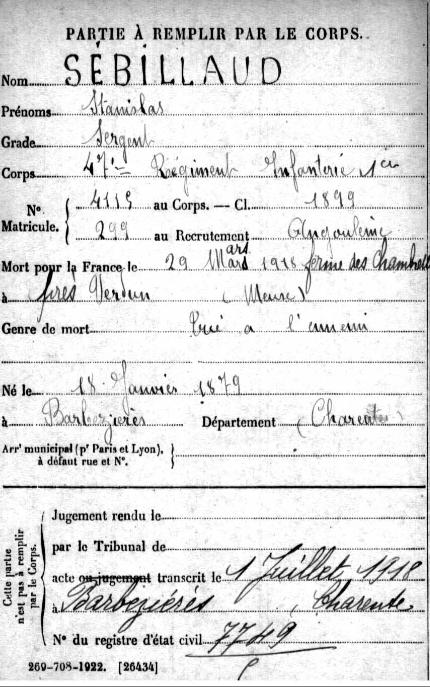 PARTIE À REMPLIR PAR LE CORPS.
Nom SÉBILLAUD
Prénoms Stanislas
Grade Sergent
Corps 47e Régiment Infanterie
N° Matricule. 4115 au Corps. — Cl. 1899
299 au Recrutement Angoulême
Mort pour la France le 29 Mars 1918 ferme des Chambrett
à près Verdun (Meuse)
Genre de mort Tué a l'ennemi
Né le 18 Janvier 1879
à Barbezières Département (Charente)
Arrt municipal (pr Paris et Lyon), à défaut rue et N°.
Cette partie n'est pas à remplir par le Corps.
Jugement rendu le
par le Tribunal de
acte ou jugement transcrit le 1 Juillet 1918
à Barbezières (Charente)
N° du registre d'état civil 7749
269-708-1922. [26434]